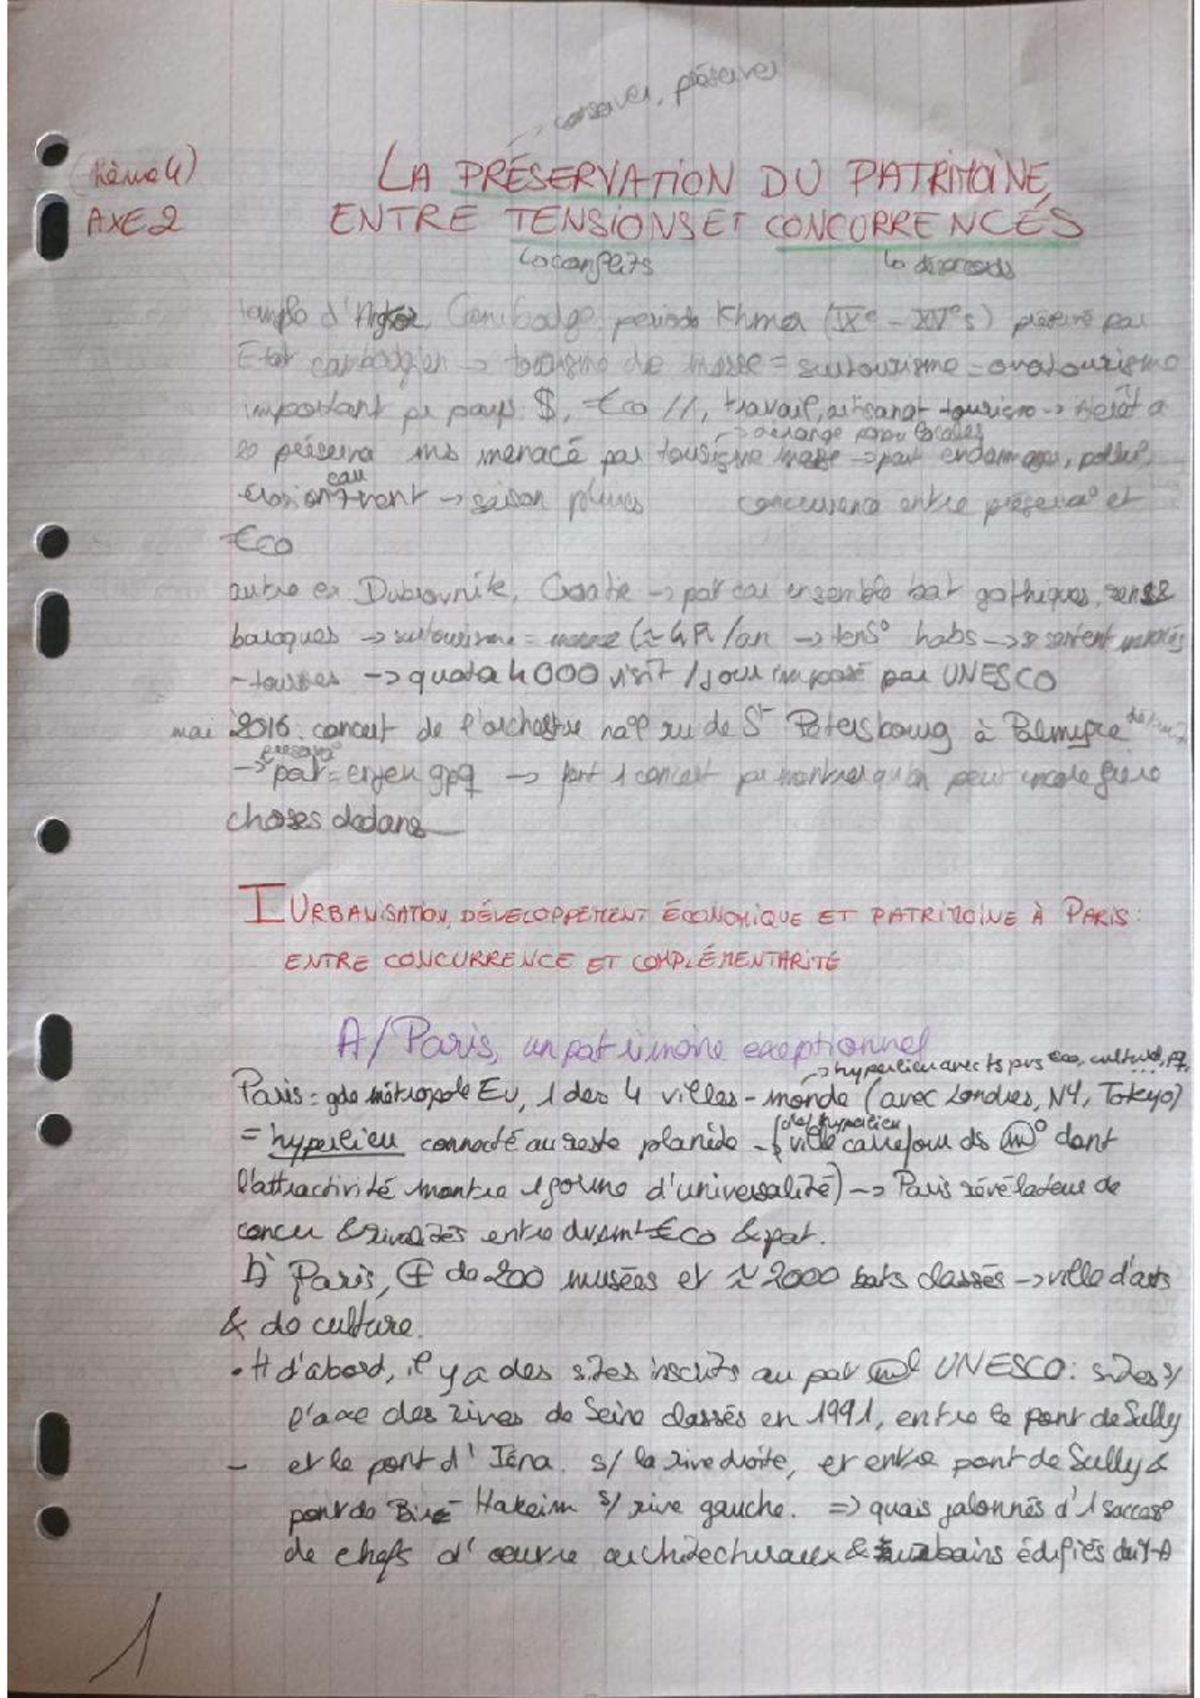 → conserver, préserver
(thème 4)
LA PRÉSERVATION DU PATRIMOINE,
AXE 2
ENTRE TENSIONS ET CONCURRENCES
↳ conflits
temple d'Angkor, Cambodge, période Khmer (IXe - XVe s) préservé par
Etat cambodgien → tourisme de masse = surtourisme = overtourisme
important pr pays $, €co //, travail, artisanat tourisme →
→ dérange popu locales
préserver ms menacé par tourisme masse → peut endommager, pollu°,
eau
érosion + vent → saison pluies concurrence entre préserva° et
€co
autre ex Dubrovnik, Croatie → pat car ensemble bat gothiques,
baroques → surtourisme = menace (≈ /an → tens° habs → se sentent
→ quota 4000 visit / jour imposé par UNESCO
mai 2016 : concert de l'orchestre na°l de St Petersbourg à Palmyre
préserva°
→ pat = enjeu gpq → font 1 concert pr montrer qu'on peut encore faire
choses dedans
I URBANISATION, DÉVELOPPEMENT ÉCONOMIQUE ET PATRIMOINE À PARIS :
ENTRE CONCURRENCE ET COMPLÉMENTARITÉ
A/ Paris, un patrimoine exceptionnel
→ hyperlieu avec ts pvs éco, culturel,
Paris = gde métropole Eu, 1 des 4 villes-monde (avec Londres, NY, Tokyo)
(def hyperlieu
= hyperlieu connecté au reste planète → ville carrefour ds (m)° dont
l'attractivité montre 1 forme d'universalité) → Paris révélateur de
concu & rivalités entre dvpmt €co & pat.
À Paris, ⊕ de 200 musées et ≈ 2000 bats classés → ville d'arts
& de culture.
• tt d'abord, il y a des sites inscrits au pat (m)l UNESCO : sites s/
l'axe des rives de Seine classés en 1991, entre le pont de Sully
- et le pont d'Iéna. s/ la rive droite, et entre pont de Sully &
pont de Bir-Hakeim s/ rive gauche. => quais jalonnés d'1 success°
de chefs d'œuvre architecturaux & urbains édifiés du M-A
1